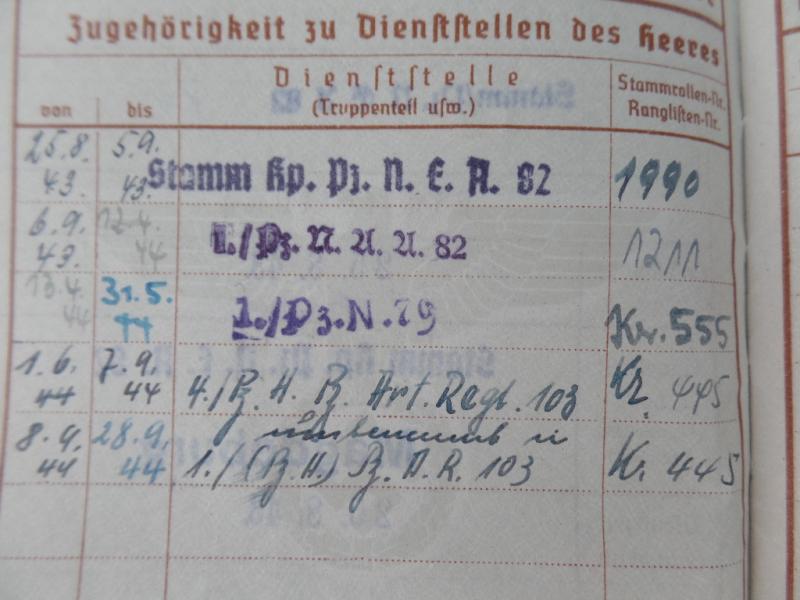 Zugehörigkeit zu Dienststellen des Heeres
von bis Dienststelle (Truppenteil usw.) Stammrollen-Nr. Ranglisten-Nr.
25.8. 43. 5.9. 43. Stamm Kp. Pz. N. E. A. 82 1990
6.9. 43. 12.4. 44 1./Pz. N. A. A. 82 1211
13.4. 44 31.5. 44 1./Pz.N.79 Kr. 555
1.6. 44 7.9. 44 4./Pz. A. R. Art. Regt. 103 Kr. 445
umbenannt in
8.9. 44 28.9. 44 1./(Pz.H.) Pz. A. R. 103 Kr. 445